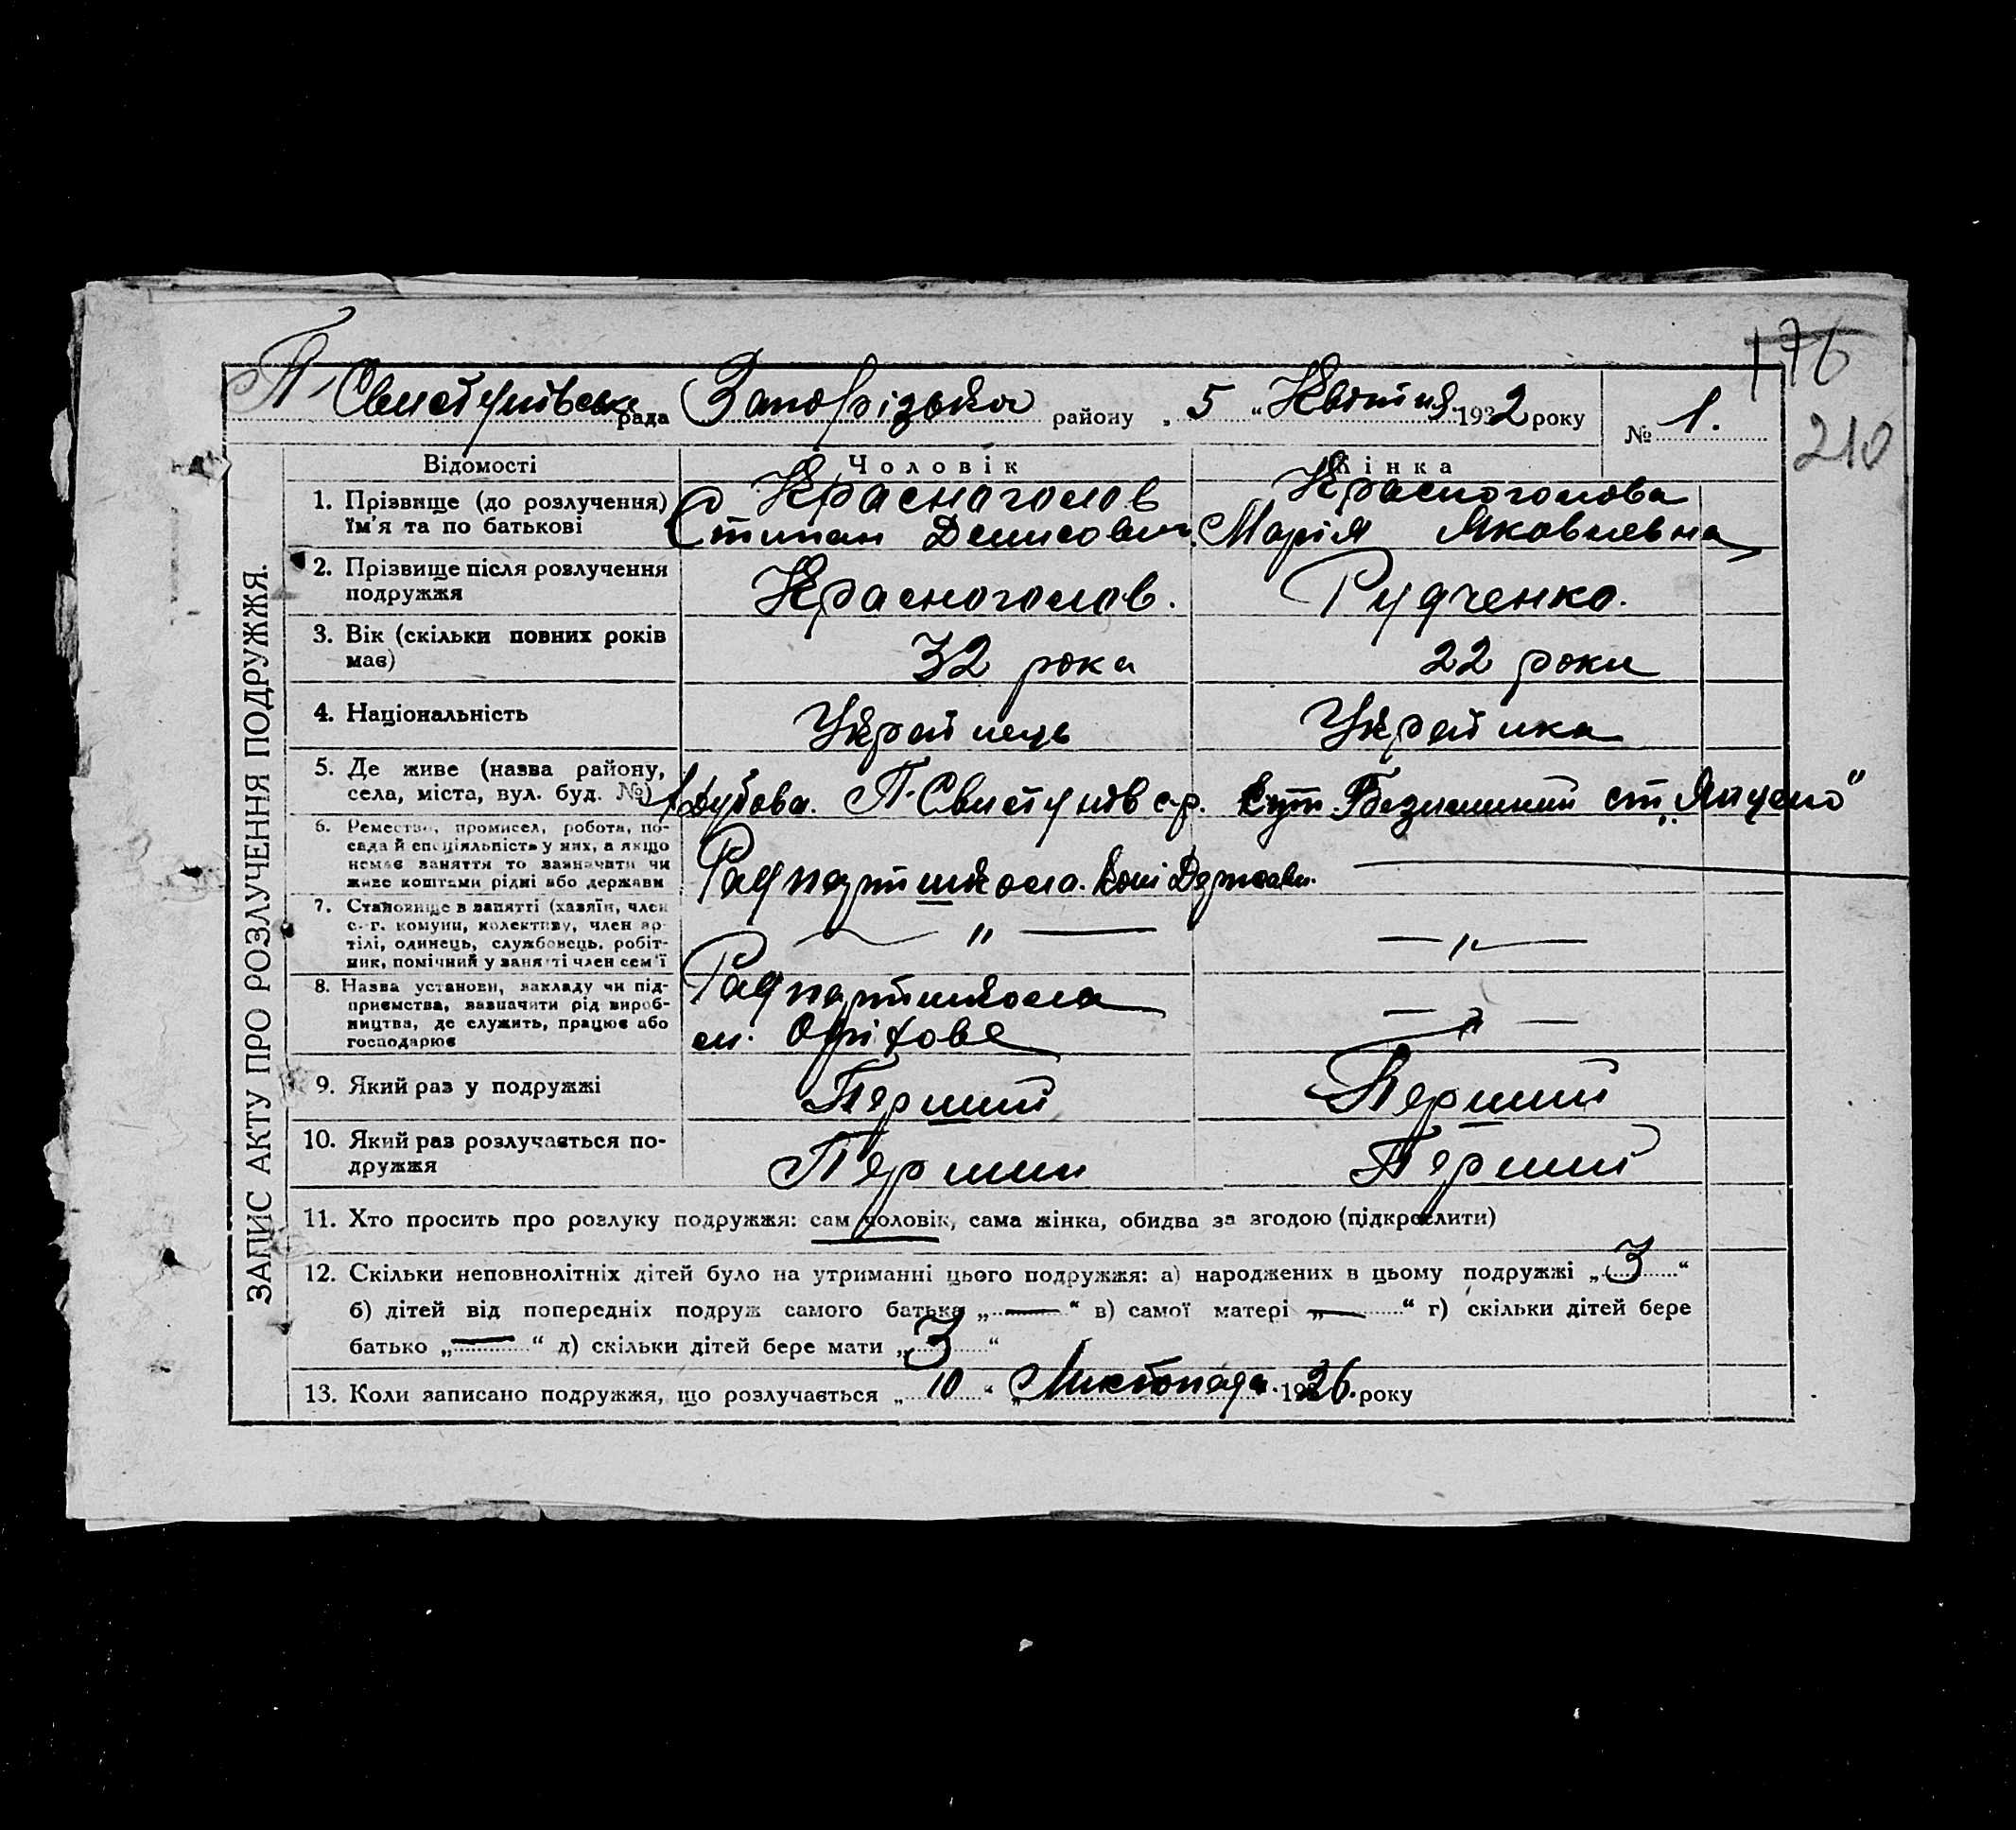 176
210
П-Свистунівська рада Запорізька району „ 5 “ Квітня 1932 року № 1.
ЗАПИС АКТУ ПРО РОЗЛУЧЕННЯ ПОДРУЖЖЯ.
Відомості Чоловік Жінка
1. Прізвище (до розлучення) Красноголов Красноголова
їм'я та по батькові Степан Денисович. Марія Яковлевна
2. Прізвище після розлучення
подружжя Красноголов. Рудченко.
3. Вік (скільки повних років
має) 32 рока 22 роки
4. Національність Українець Українка
5. Де живе (назва району,
села, міста, вул. буд. №) П-Свистунів с-р. ст.
6. Ремество, промисел, робота, по-
сада й спеціяльність у них, а якщо
немає заняття то зазначати чи
живе коштами рідні або держави Радпартшкола. Кош Держави. —
7. Становище в занятті (хазяїн, член
с.-г. комуни, колективу, член ар-
тілі, одинець, службовець, робіт-
ник, помічний у занятті член сем'ї — " — — " —
8. Назва установи, закладу чи під-
приємства, зазначити рід вироб-
ництва, де служить, працює або
господарює Радпартшкола
м. Оріхове — " —
9. Який раз у подружжі Перший Перший
10. Який раз розлучається по-
дружжя Перший Перший
11. Хто просить про розлуку подружжя: сам чоловік, сама жінка, обидва за згодою (підкреслити)
12. Скільки неповнолітніх дітей було на утриманні цього подружжя: а) народжених в цьому подружжі „ 3 “
б) дітей від попередніх подруж самого батька „ — “ в) самої матері „ — “ г) скільки дітей бере
батько „ — “ д) скільки дітей бере мати „ 3 “
13. Коли записано подружжя, що розлучається „ 10 “ „ Листопада. 1926. року